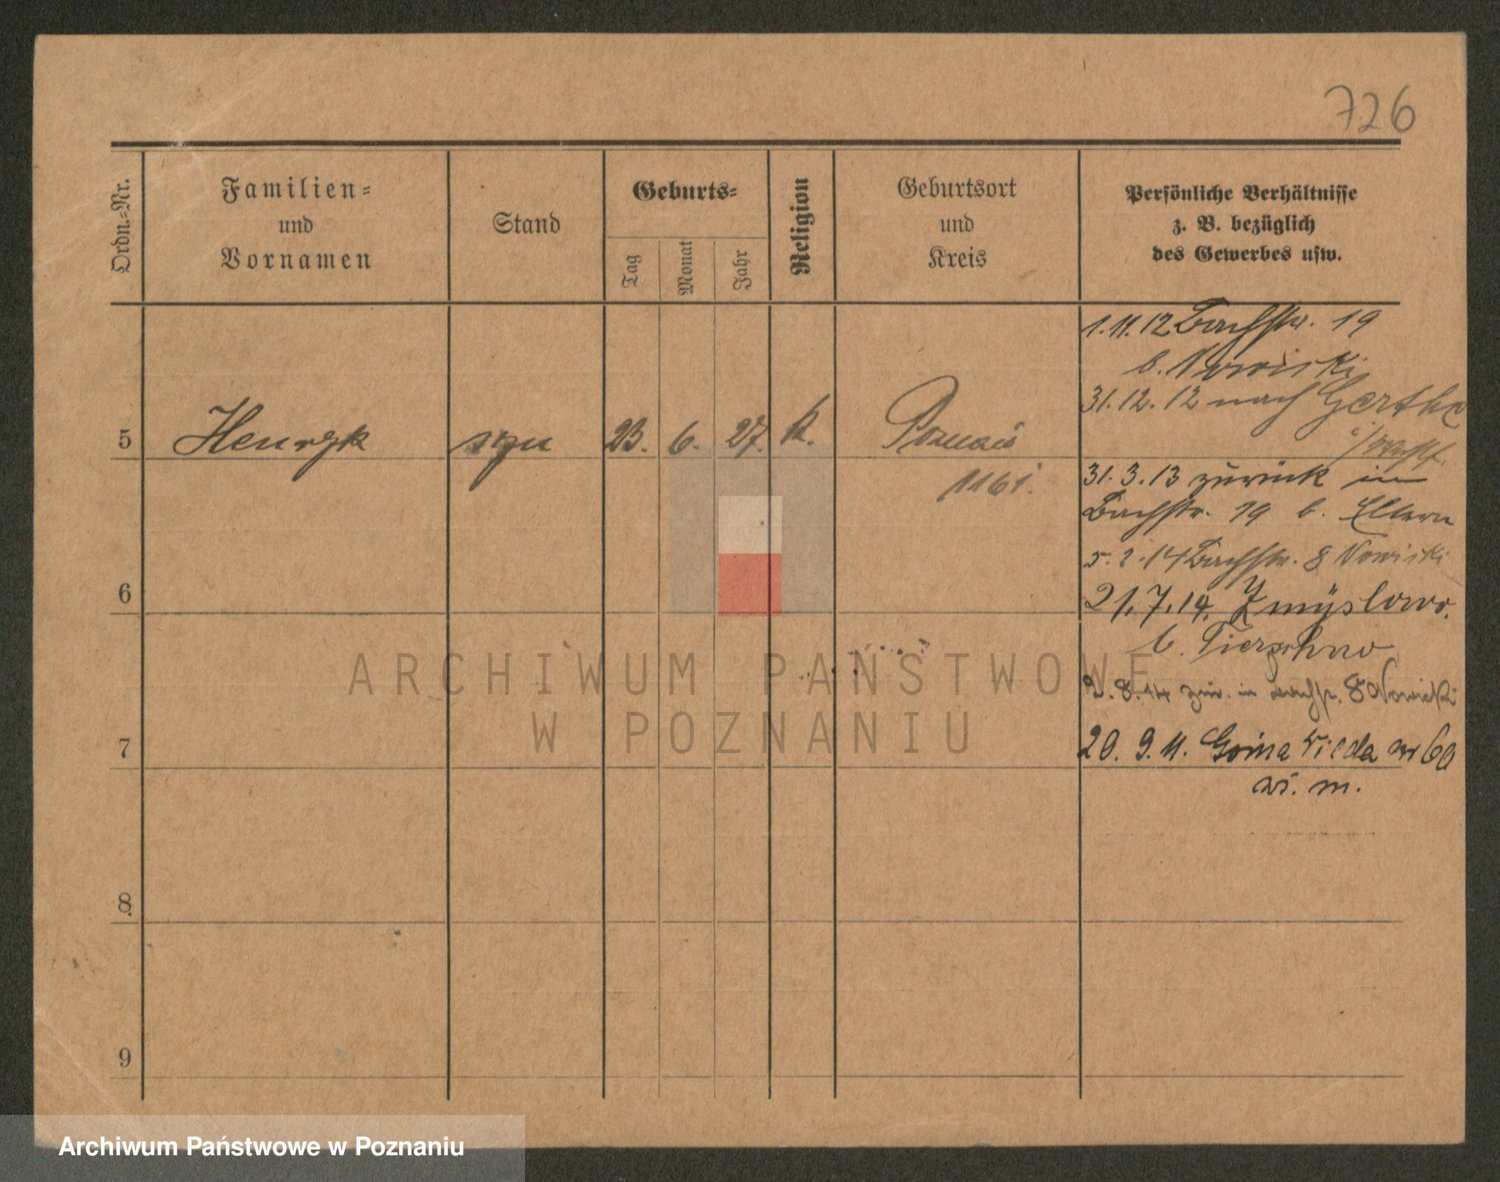 726
Ordn.=Nr.
Familien=
und
Vornamen
Stand
Geburts=
Tag
Monat
Jahr
Religion
Geburtsort
und
Kreis
Persönliche Verhältnisse
z. B. bezüglich
des Gewerbes usw.
1.11.12 Bachstr. 19
b. Nowiski
31.12.12 nach Gerthe
5 Henryk syn 23. 6. 27. k. Poznań
1161.
31.3.13 zurück in
Bachstr. 19 b. Eltern
5.2.14 Bachstr. 8 Nowiski
6
21.7.14. Zmÿslowo.
b.
2.8.14 zur. in Bachstr. 8 Nowiski
7
20. 9. Gorna Wilda nr 60
w. m.
8
9
ARCHIWUM PAŃSTWOWE
W POZNANIU
Archiwum Państwowe w Poznaniu